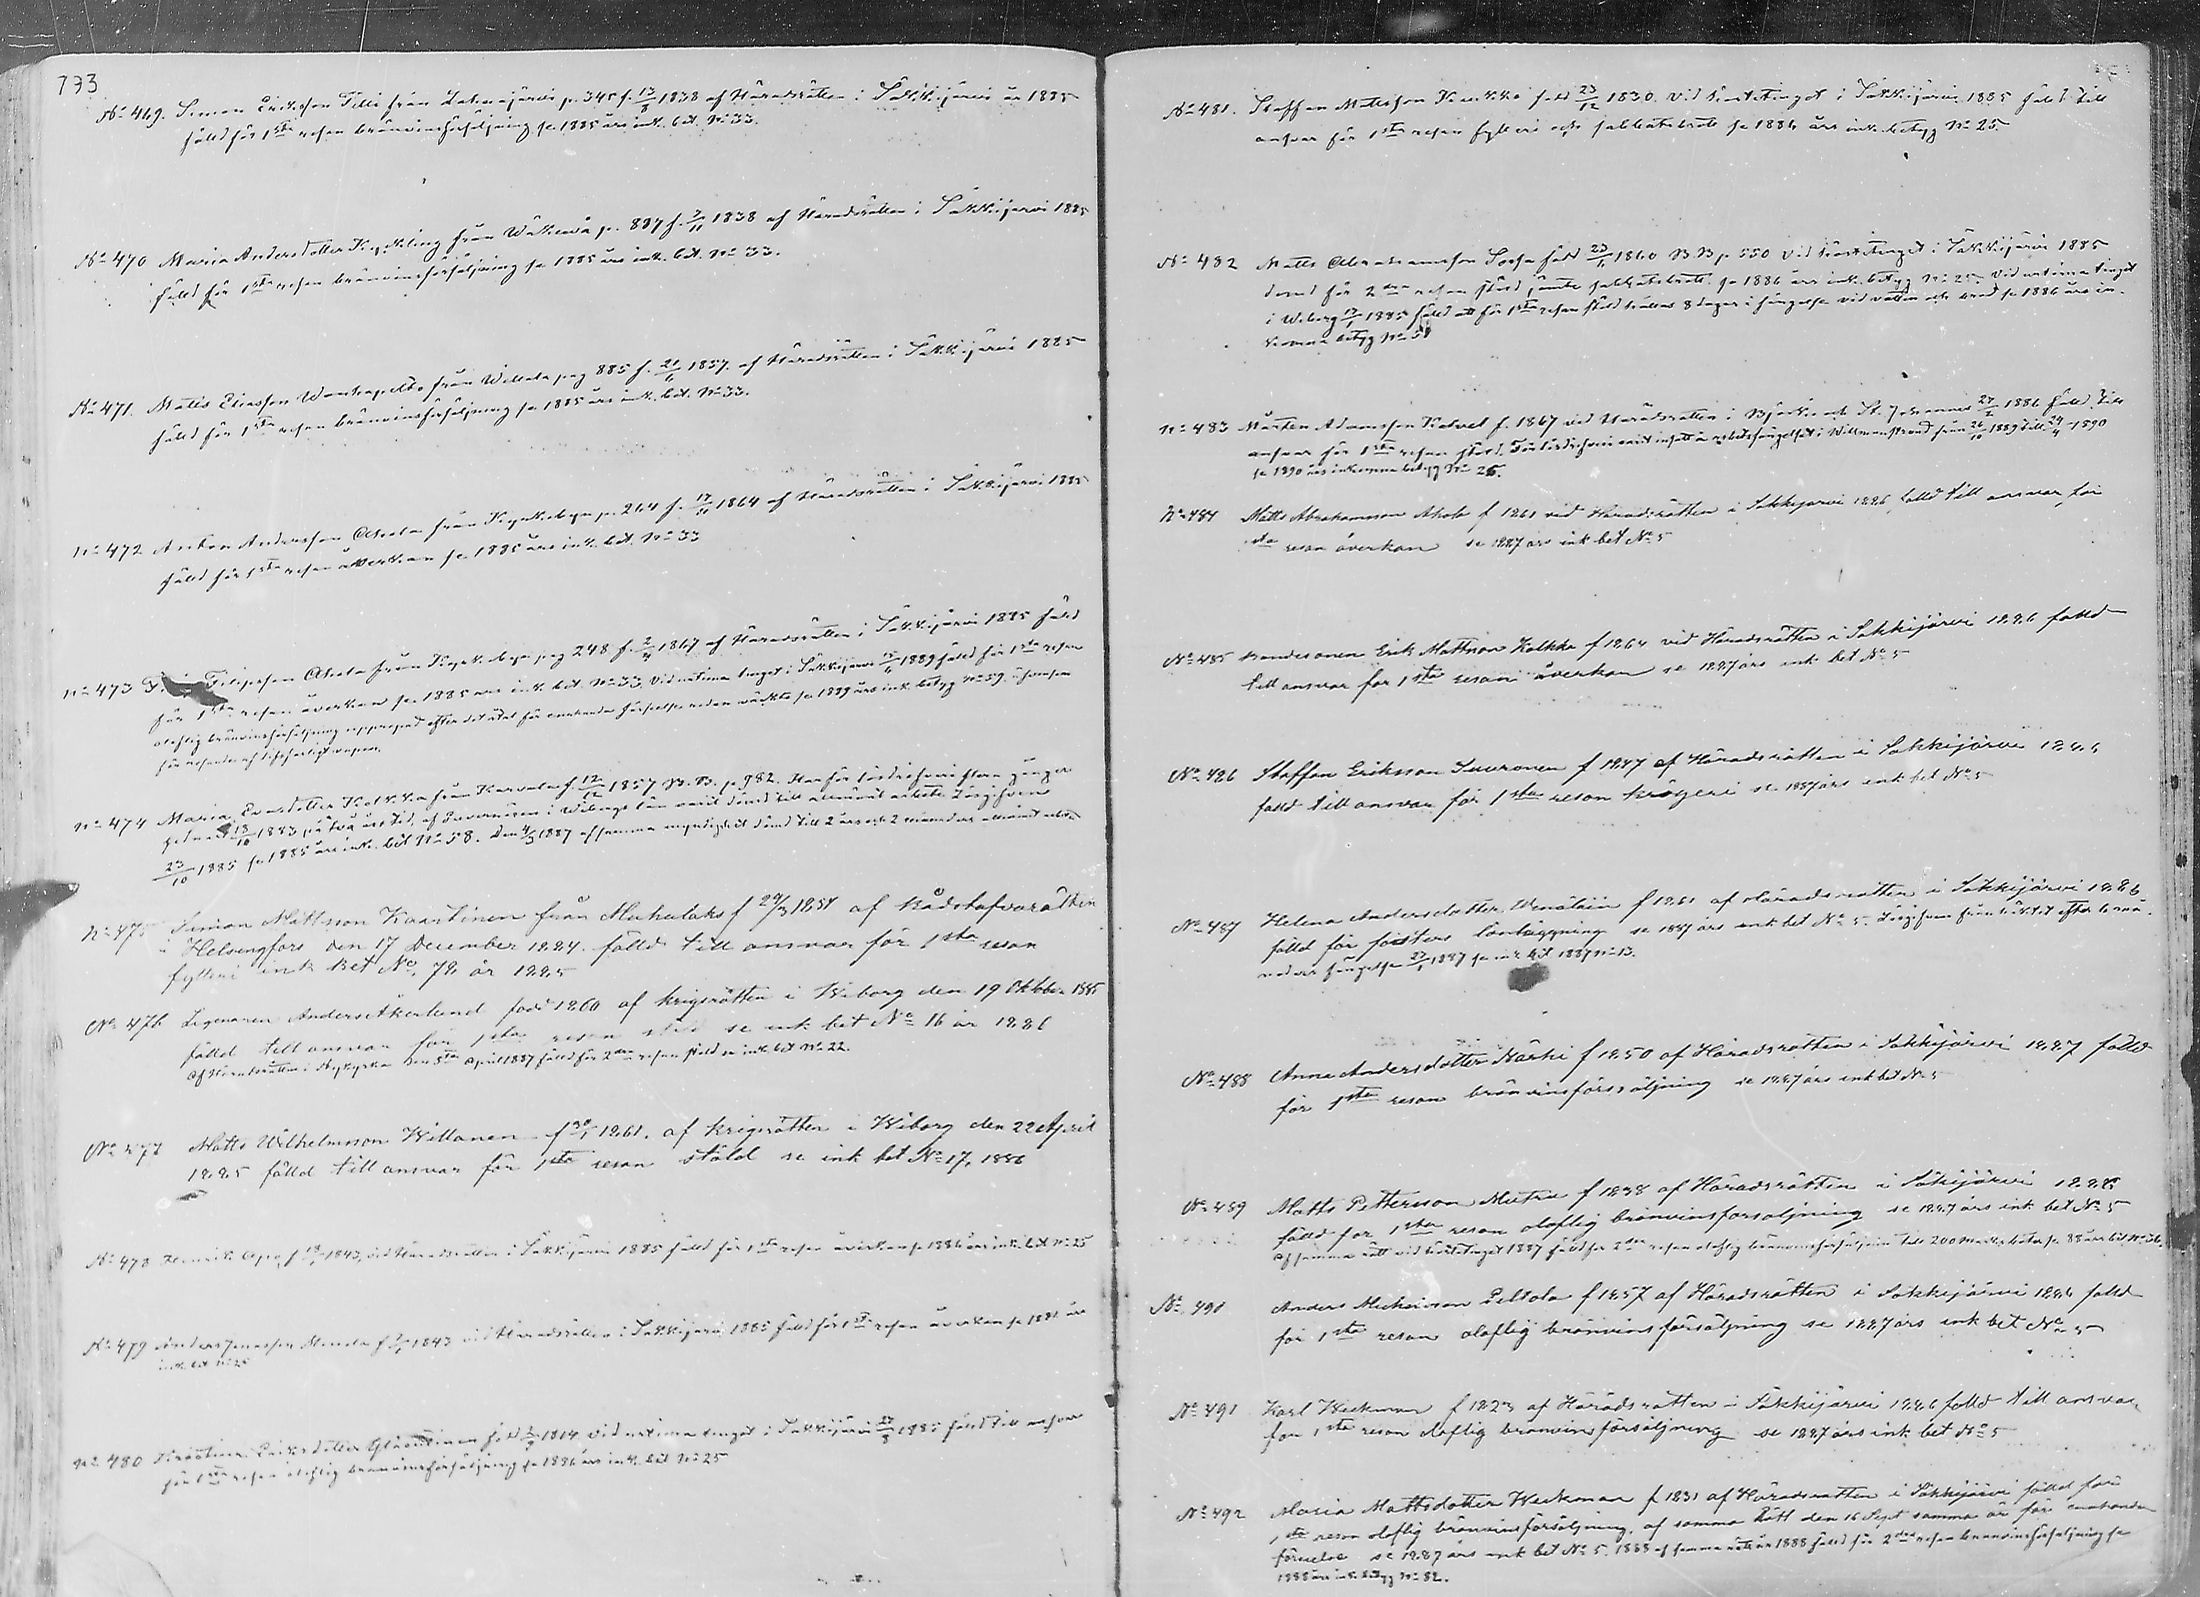 773
No 469. Simon Eriksson Tilli från Lahnajärvi p. 345 f. 13/8 1838 af Häradsrätten i Säkkijärvi år 1885
fälld för 1sta resan bränvinsförsäljning se 1885 års ink. bet. No 33.
No 470 Maria Andersdotter Kyckling från p. 887 f. 3/11 1838 af Häradsrätten i Säkkijärvi 1885
fälld för 1sta resan bränvinsförsäljning se 1885 års ink. bet. No 33.
No 471. Matts Eliasson från Willala pag 885 f. 21/6 1857 af Häradsrätten i Säkkijärvi 1885
fälld för 1sta resan bränvinsförsäljning se 1885 års ink. bet. No 33.
No 472 Anton Andersson Ahola från p. 264 f. 17/11 1864 af Häradsrätten i Säkkijärvi 1885
fälld för 1sta resan åverkan se 1885 års ink. bet. No 33
No 473 Filipsson Ahola från pag 248 f. 2/4 1867 af Häradsrätten i Säkkijärvi 1885 fälld
för 1sta resan åverkan se 1885 års ink. bet. No 33. Vid urtima tinget i Säkkijärvi 1889 fälld för 1sta resan
olaflig bränvinsförsäljning efter det åtal för enahanda förseelse redan väckts se 1889 års ink. betyg No 59. äfvensom
för af lifsfarligt vapen.
No 474 Maria Evasdotter Kolkka från Karvala f. 12/12 1857 B.B. p. 982. Har för lösdrifveri flera gånger
13/10 1883 på två års tid, af Guvernören i Wiborgs län varit dömd till allmänt arbete. Lösgifven
23/10 1885 se 1885 års ink. bet No 58. Den 4/3 1887 af samma myndighet dömd till 2 års och 2 månaders allmänt arbete
No 475 Simon Mattsson Kaartinen från Muhulaks f 29/3 1854 af Rådstufvurätten
i Helsingfors den 17 December 1884. fälld till ansvar för 1sta resan
fylleri ink bet No. 72 år 1885
No 476 Legonaren Anders Åkerlund född 1860 af krigsrätten i Wiborg den 19 Oktober 1885
fälld till ansvar för 1sta resan stöld se ink bet No 16 år 1886
Af Häradsrätten i Nykyrka den 5te April 1887 fälld för 2dra resan stöld se ink bet No 22.
No 477 Matts Wilhelmsson Willanen f 30/1 1861. af krigsrätten i Wiborg den 22 April
1885 fälld till ansvar för 1sta resan stöld se ink bet No 17, 1886
No 478 Henrik f 1843, vid Häradsrätten i Säkkijärvi 1885 fälld för 1sta resan åverkan se 1886 års ink. bet No 25
No 479 Anders Jonasson f 1843 vid Häradsrätten i Säkkijärvi 1885 fälld för 1sta resan åverkan se 1886 års
ink. bet No 25
No 480 Kristina Eriksdotter född 1814. Vid urtima tinget i Säkkijärvi 27/8 1885 fälld till ansvar
för 1sta resan olaflig bränvinsförsäljning se 1886 års ink. bet No 25
No 481. Staffan Mattsson född 23/12 1830. Vid hösttinget i Säkkijärvi 1885 fälld till
ansvar för 1sta resan fylleri och sabbatsbrott se 1886 års ink. betyg No 25.
No 482 Matts Abrahamsson född 23/6 1860 B.B. p 550 Vid hösttinget i Säkkijärvi 1885
dömd för 2dra resan stöld jämte sabbatsbrott. se 1886 års ink. betyg No 25. Vid urtima tinget
i Wiborg 17/1 1885 fälld att för 1sta resan stöld hållas 8 dagar i fängelse vid vatten och bröd se 1886 års in-
komna betyg No 51
No 483 Mårten Adamsson f. 1867 vid Häradsrätten i Björkö och St. Johannes 27/2 1886 fälld till
ansvar för 1sta resan stöld. För lösdrifveri varit insatt i arbetsfängelset i Willmanstrand från 26/10 1889 till 24/4 1890
se 1890 års inkomna betyg No 25.
No 484 Matts Abrahamsson Ahola f 1861 vid Häradsrätten i Säkkijärvi 1886 fälld till ansvar för
sta resan åverkan se 1887 års ink bet No 5
No 485 Bondesonen Erik Mattsson Kolkka f 1864 vid Häradsrätten i Säkkijärvi 1886 fälld
till ansvar för 1sta resan åverkan se 1887 års ink bet No 5
No 486 Staffan Eriksson Suuronen f 1847 af Häradsrätten i Säkkijärvi 1886
fälld till ansvar för 1sta resan krögeri se 1887 års ink bet No 5
No 487 Helena Andersdotter f 1861 af Häradsrätten i Säkkijärvi 1886
fälld för fosters lönläggning se 1887 års ink bet No 5. Lösgifven från häktet efter 6 må-
naders fängelse 27/1 1887 se ink bet 1887 No 13.
No 488 Anna Andersdotter Närhi f 1850 af Häradsrätten i Säkkijärvi 1887 fälld
för 1sta resan bränvinsförsäljning se 1887 års ink bet No 5
No 489 Matts Pettersson Mutru f 1838 af Häradsrätten i Säkkijärvi 1886
fälld för 1sta resan olaflig bränvinsförsäljning se 1887 års ink bet No 5
Af samma rätt vid hösttinget 1887 fälld för 2dra resan olaflig bränvinsförsäljning till 200 marks böter se 88 års bet No
No 490 Anders Mickelsson Peltola f 1857 af Häradsrätten i Säkkijärvi 1886 fälld
för 1sta resan olaflig bränvinsförsäljning se 1887 års ink bet No 5
No 491 Karl Weckman f 1823 af Häradsrätten i Säkkijärvi 1886 fälld till ansvar
för 1sta resan olaflig bränvinsförsäljning se 1887 års ink bet No 5
No 492 Maria Mattsdotter Weckman f 1831 af Häradsrätten i Säkkijärvi fälld för
1sta resan olaflig bränvinsförsäljning, af samma Rätt den 16 Sept samma år för enahanda
förseelse se 1887 års ink bet No 5. 1888 af samma rätt år 1888 fälld för 2dra resan bränvinsförsäljning se
1888 års ink. betyg No 82.